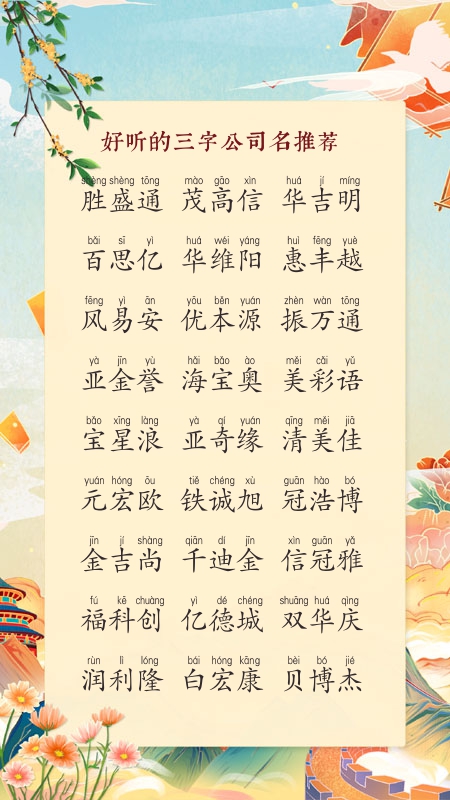 好听的三字公司名推荐
shèng shèng tōng mào gāo xìn huá jí míng
胜盛通 茂高信 华吉明
bǎi sī yì huá wéi yáng huì fēng yuè
百思亿 华维阳 惠丰越
fēng yì ān yōu běn yuán zhèn wàn tōng
风易安 优本源 振万通
yà jīn yù hǎi bǎo ào měi cǎi yǔ
亚金誉 海宝奥 美彩语
bǎo xīng làng yà qí yuán qīng měi jiā
宝星浪 亚奇缘 清美佳
yuán hóng ōu tiě chéng xù guān hào bó
元宏欧 铁诚旭 冠浩博
jīn jí shàng qiān dí jīn xìn guān yǎ
金吉尚 千迪金 信冠雅
fú kē chuàng yì dé chéng shuāng huá qìng
福科创 亿德城 双华庆
rùn lì lóng bái hóng kāng bèi bó jié
润利隆 白宏康 贝博杰